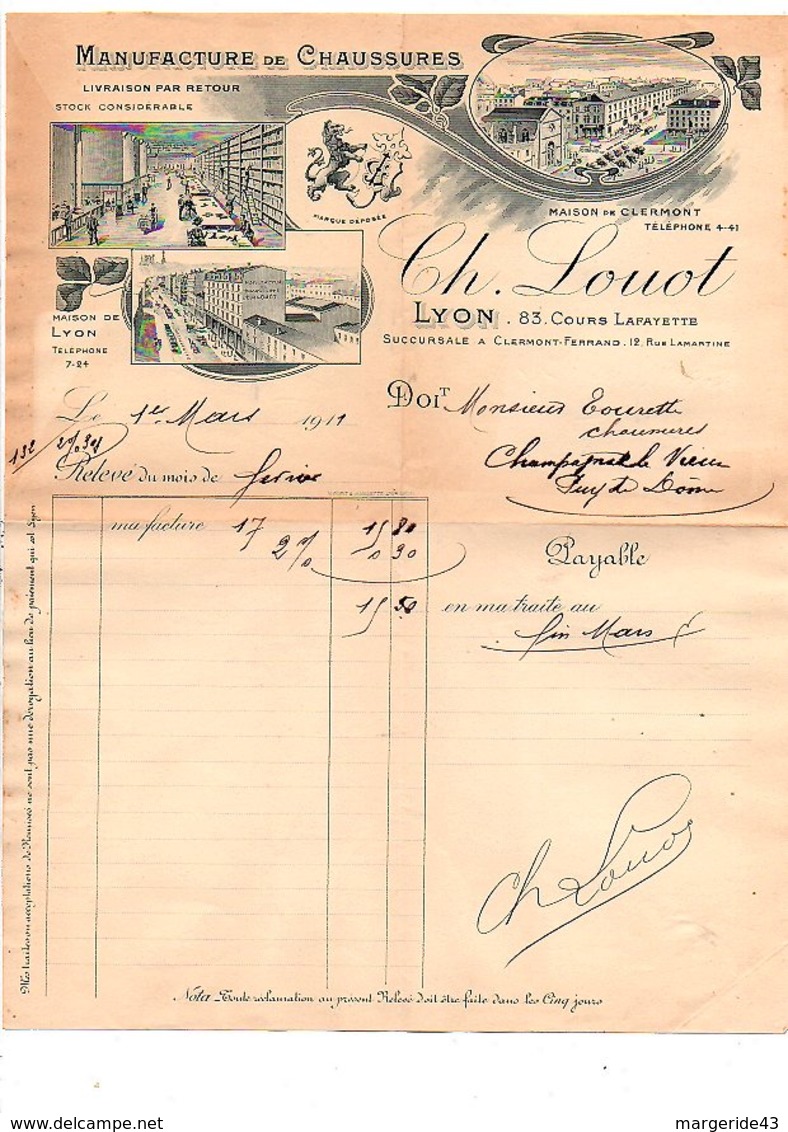 MANUFACTURE DE CHAUSSURES
LIVRAISON PAR RETOUR
STOCK CONSIDÉRABLE
MARQUE DÉPOSÉE
MAISON DE CLERMONT
TÉLÉPHONE 4-41
Ch. Louot
LYON . 83. COURS LAFAYETTE
SUCCURSALE A CLERMONT-FERRAND. 12, RUE LAMARTINE
MAISON DE
LYON
TÉLÉPHONE
7-24
Le 1er Mars 1911
DOIT Monsieur Tourette
chaussures
Champagnat le Vieux
Puy de Dôme
132
Relevé du mois de février
ma facture 17 15 80
2% 0 30
15 50
Payable
en ma traite au
fin Mars
Ch Louot
Mes traites ou acceptations de Remises ne sont pas une dérogation au lieu de paiement qui est Lyon
Nota Toute réclamation au présent Relevé doit être faite dans les Cinq jours
margeride43